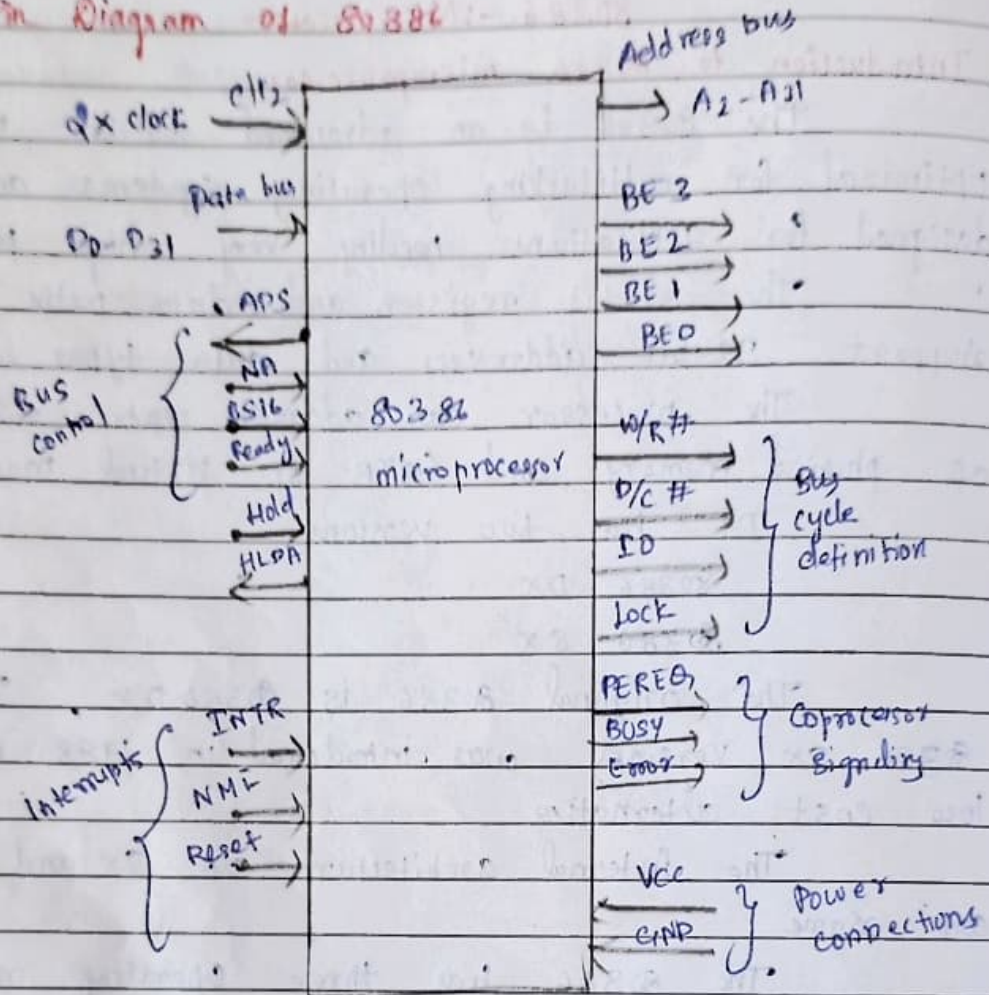 in Diagram of 80386
Address bus
2x clock
A2 - A31
Data bus
D0 - D31
BE 3
BE 2
BE 1
BE 0
ADS
NA
BS16
Ready
Bus control
Hold
HLDA
80386
microprocessor
W/R #
D/C #
IO
Lock
Bus
cycle
definition
PEREQ
BUSY
Error
Coprocessor
Signaling
INTR
NMI
Reset
Interrupts
VCC
GND
Power
connections